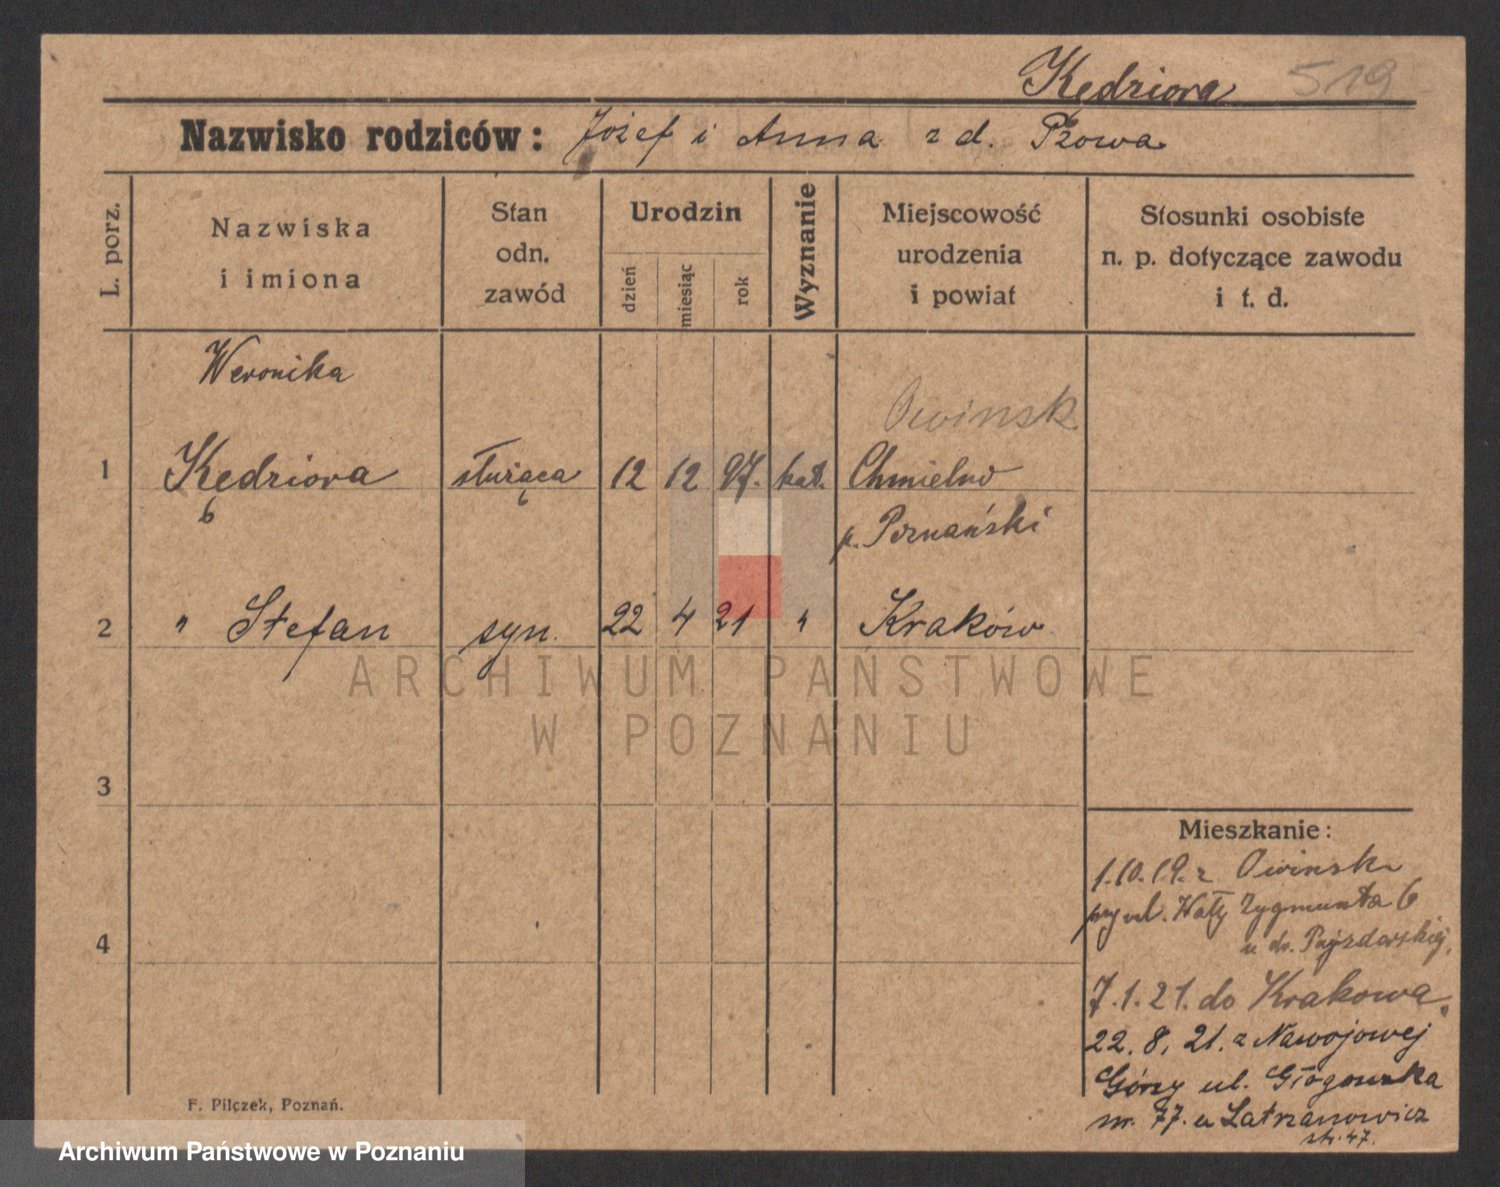 Kędziora 519
Nazwisko rodziców: Józef i Anna z d. Pzowa
L. porz.
Nazwiska
i imiona
Stan
odn.
zawód
Urodzin
dzień
miesiąc
rok
Wyznanie
Miejscowość
urodzenia
i powiat
Stosunki osobiste
n. p. dotyczące zawodu
i t. d.
Weronika
Owinsk
1 Kędziora służąca 12 12 97. kat. Chmielno
p. Poznański
2 " Stefan syn. 22 4 21 " Kraków
ARCHIWUM PAŃSTWOWE
W POZNANIU
3
4
Mieszkanie:
1.10.19. z Owinsk
przy ul. Wały Zygmunta 6
u dr.
7.1.21. do Krakowa.
22.8.21. z Nawojowej
Góry ul. Głogowska
nr. 77. u Latzanowicz
str. 47.
F. Pilczek, Poznań.
Archiwum Państwowe w Poznaniu